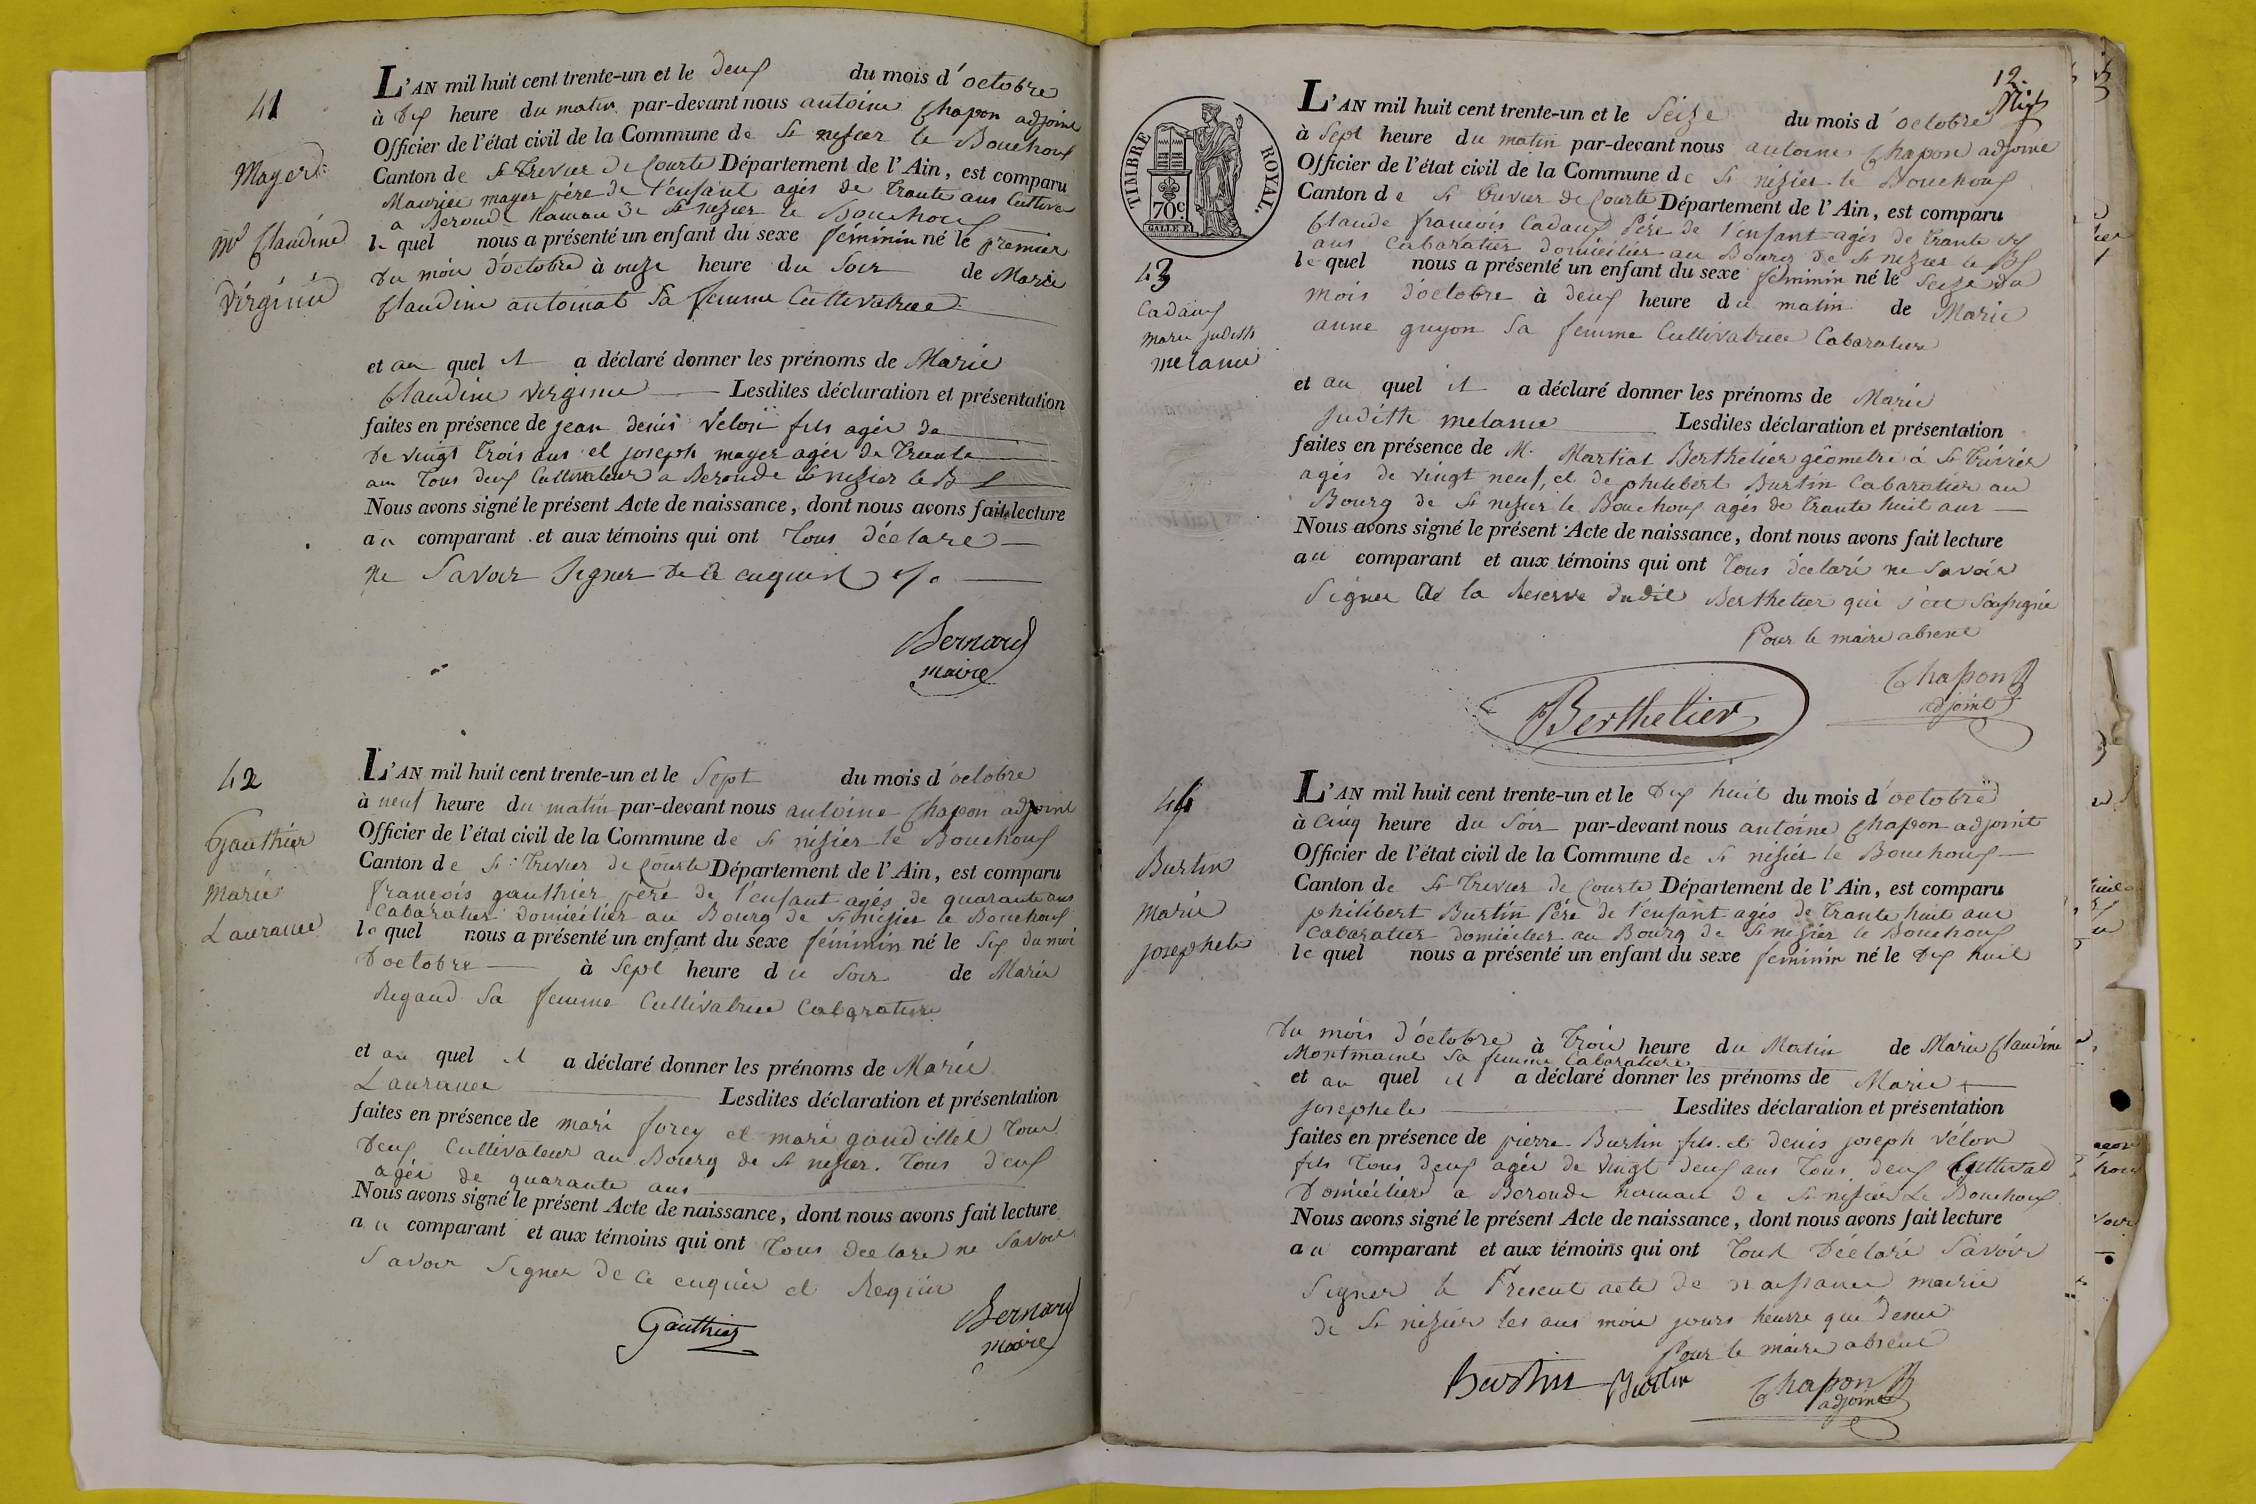 41
Mayer
Mie Claudine
Virginie
L'AN mil huit cent trente-un et le deux du mois d'octobre
à dix heure du matin par-devant nous antoine Chapon adjoint
Officier de l'état civil de la Commune de St nesier le Bouchoux
Canton de St trevier de Courte Département de l'Ain, est comparu
Maurice mayer père de l'enfant agés de trante ans Cultiva
a Beroude hamau de St nesier le Bouchoux
lequel nous a présenté un enfant du sexe féminin né le premier
du mois d'octobre à onze heure du Soir de Marie
Claudine antoinat Sa femme Cultivatrice
et au quel il a déclaré donner les prénoms de Marie
Claudine virginie Lesdites déclaration et présentation
faites en présence de jean denis Veloi fils agés de
de vingt trois ans et joseph mayer agés de trante
ans tous deux Cultivateur a Beroude St nesier le B
Nous avons signé le présent Acte de naissance, dont nous avons fait lecture
au comparant et aux témoins qui ont tous déclare
ne Savoir Signer de ce enquis
Bernard
maire
42
Gauthier
Marie
Laurance
L'AN mil huit cent trente-un et le Sept du mois d'octobre
à neuf heure du matin par-devant nous antoine Chapon adjoint
Officier de l'état civil de la Commune de St nisier le Bouchoux
Canton de St trevier de Courte Département de l'Ain, est comparu
francois gauthier père de l'enfant agés de quarante ans
Cabaratier domicilier au Bourg de St nisier le Bouchoux
lequel nous a présenté un enfant du sexe féminin né le Six du moi
d'octobre à Sept heure du Soir de Marie
Regaud Sa femme Cultivatrice Cabaratiere
et au quel il a déclaré donner les prénoms de Marie
Laurance Lesdites déclaration et présentation
faites en présence de mari forey et mari goudillet tous
deux Cultivateur au Bourg de St nesier. tous deux
agés de quarante ans
Nous avons signé le présent Acte de naissance, dont nous avons fait lecture
au comparant et aux témoins qui ont tous declare ne Savoir
Savoir Signer de ce enquis et Requis
Gauthier
Bernard
maire
12.
TIMBRE ROYAL.
70c
43
Cadaux
marie judith
melanie
L'AN mil huit cent trente-un et le Seize du mois d'octobre
à Sept heure du matin par-devant nous antoine Chapon adjoint
Officier de l'état civil de la Commune de St nizier le Bouchoux
Canton de St trivier de Courte Département de l'Ain, est comparu
Claude francois Cadaux Père de l'enfant agés de trante six
ans Cabaratier domicilier au Bourg de St nezier le B
lequel nous a présenté un enfant du sexe féminin né le Seize du
mois d'octobre à deux heure du matin de Marie
anne guyon Sa femme Cultivatrice Cabaratiere
et au quel il a déclaré donner les prénoms de Marie
Judith melanie Lesdites déclaration et présentation
faites en présence de M. Martial Berthelier géometre à St trivier
agés de vingt neuf, et de philibert Burtin Cabaratier au
Bourg de St nesier le Bouchoux agés de trante huit ans
Nous avons signé le présent Acte de naissance, dont nous avons fait lecture
au comparant et aux témoins qui ont tous déclaré ne Savoir
Signer de la Reserve dudit Berthelier qui s'est Soussigné
Pour le maire absent
Berthelier
Chapon
adjoint
44
Burtin
Marie
josephete
L'AN mil huit cent trente-un et le dix huit du mois d'octobre
à cinq heure du Soir par-devant nous antoine Chapon adjoint
Officier de l'état civil de la Commune de St nisier le Bouchoux
Canton de St trevier de Courte Département de l'Ain, est comparu
philibert Burtin Père de l'enfant agés de trante huit ans
Cabaratier domicilier au Bourg de St nesier le Bouchoux
lequel nous a présenté un enfant du sexe feminin né le dix huit
du mois d'octobre à trois heure du Matin de Marie Claudine
Montmaint Sa femme Cabaratiere
et au quel il a déclaré donner les prénoms de Marie
josephete Lesdites déclaration et présentation
faites en présence de pierre Burtin fils et denis joseph Vélon
fils tous deux agés de vingt deux ans tous deux Cultivat
Domicilier a Beroude hamau de St nisier Le Bouchoux
Nous avons signé le présent Acte de naissance, dont nous avons fait lecture
au comparant et aux témoins qui ont tout Déclaré Savoir
Signer le Present acte de naissance mairie
de St nizier les ans mois jours heurre que desus
Pour le maire absent
Burtin Burtin
Chapon
adjoint